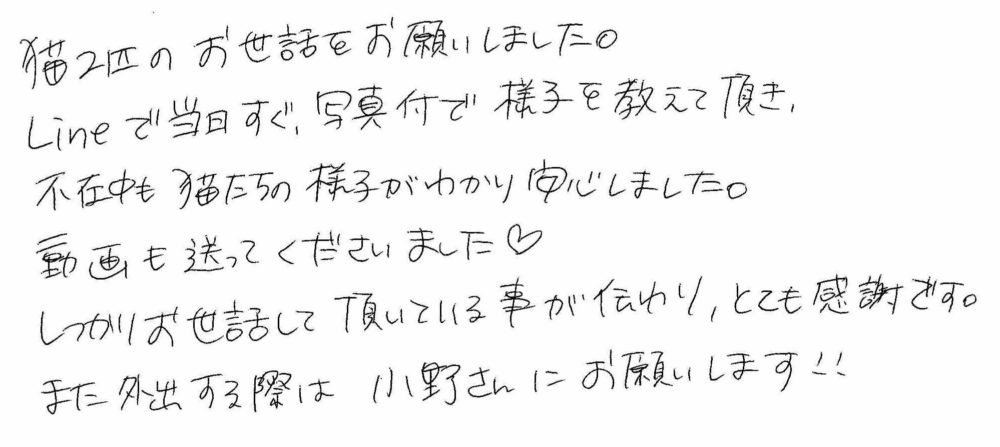 猫2匹のお世話をお願いしました。
Lineで当日すぐ、写真付で様子を教えて頂き、
不在中も猫たちの様子がわかり安心しました。
動画も送ってくださいました♡
しっかりお世話して頂いている事が伝わり、とても感謝です。
また外出する際は小野さんにお願いします!!